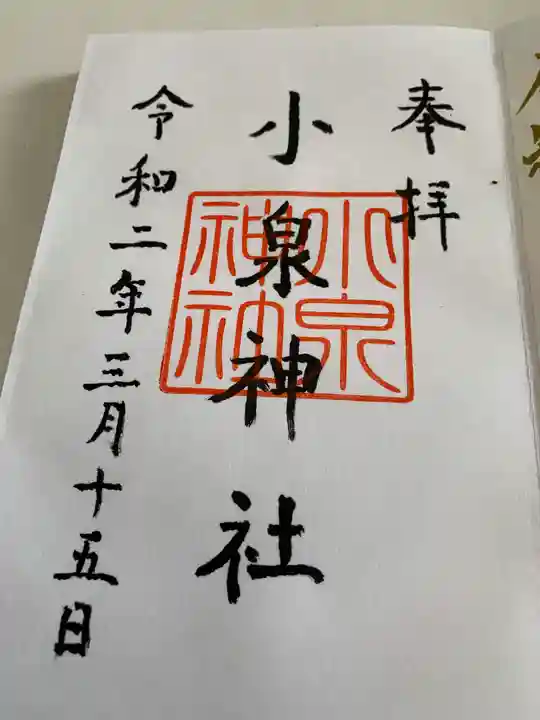 奉拝
小泉神社
小泉
神社
令和二年三月十五日